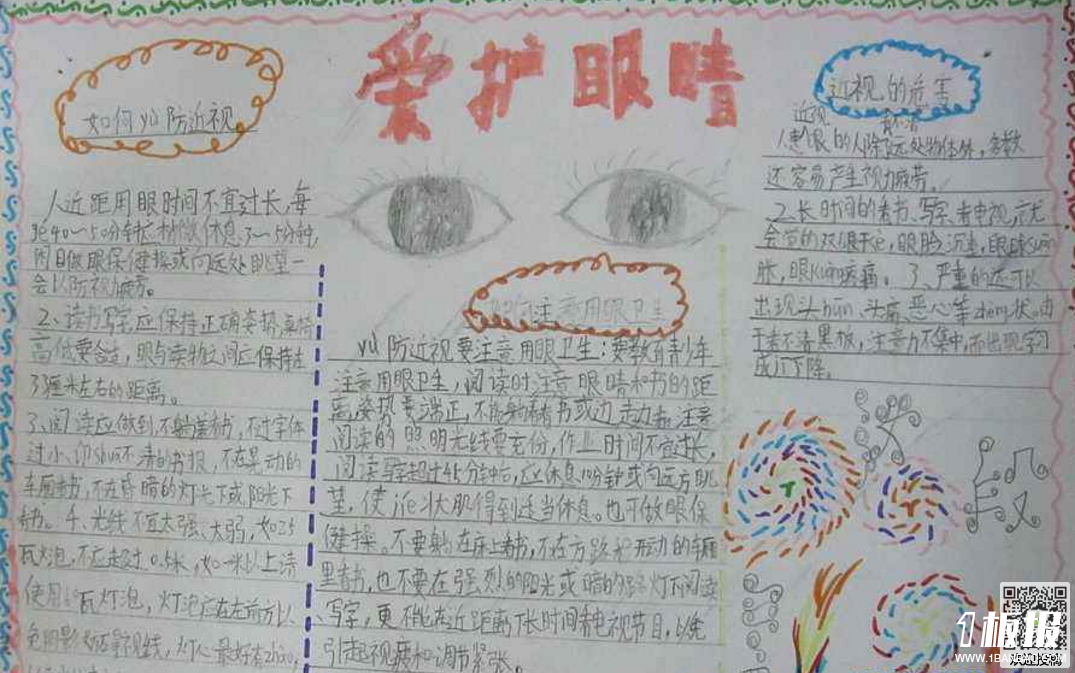 爱护眼睛
如何yù防近视
人近距用眼时间不宜过长,每
40~50分钟 休息3~5分钟,
闭目做眼保健操或向远处眺望一
会以防视力疲劳。
2、读书写字应保持正确姿势,桌椅
高低要合适,眼与读物之间应保持在
33厘米左右的距离。
3、阅读应做到不躺着看书,不过字体
过小、印shuā不清的书报,不在晃动的
车厢看书,不在昏暗的灯光下或阳光下
看书。4、光线不宜太强、太弱,如25
瓦灯泡,不应超过0.5米,如一米以上请
使用60瓦灯泡,灯泡应在左前方以
免阴影 视线,灯 最好有zhào,
注意用眼卫生
yù防近视要注意用眼卫生:要教育青少年
注意用眼卫生,阅读时注意眼睛和书的距
离,姿势要端正,不能躺着看书或边走边看,注意
阅读的照明光线要充份,作业时间不宜过长,
阅读写字超过45分钟后,应休息10分钟或向远方眺
望,使jié状肌得到适当休息。也可做眼保
健操。不要躺在床上看书,不在方 开动的车厢
里看书,也不要在强烈的阳光或暗的路灯下阅读
写字,更不能在近距离下长时间看电视节目,以免
引起视疲和调节紧张。
近视的危害
近视
看不清
1患 眼的人除 远处物体外,多数
还容易产生视力疲劳。
2、长时间的看书、写字、看电视,就
会觉的双眼干sè,眼脸沉重,眼球
胀,眼kuàng疼痛。3、严重的还可以
出现头hūn、头痛、恶心等zhèng状。由
于看不清黑板,注意力不集中,而出现学习
成 下降。
1板报
WWW.1BANBAO.COM